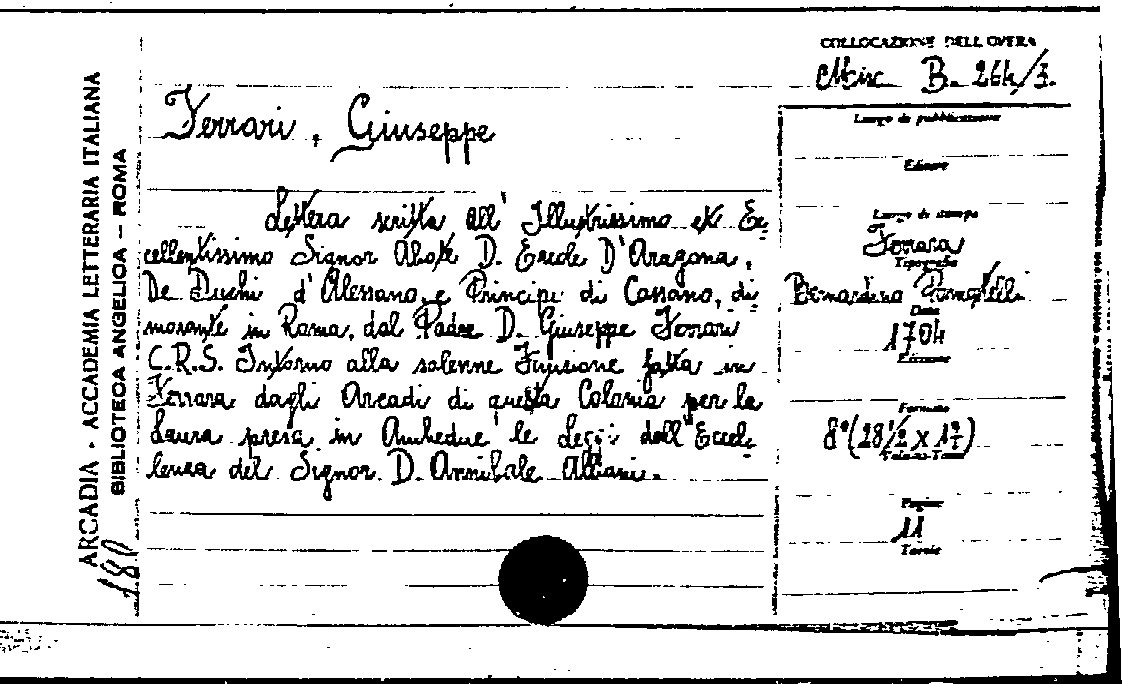 COLLOCAZIONE DELL'OPERA
Misc B. 264/3.
ARCADIA - ACCADEMIA LETTERARIA ITALIANA
BIBLIOTECA ANGELICA - ROMA
180
Ferrari, Giuseppe
Lettera scritta all' Illustrissimo et Ec
cellentissimo Signor Abate D. Ercole D'Aragona,
De Duchi d'Alessano, e Principi di Cassano, di
morante in Roma, dal Padre D. Giuseppe Ferrari
C.R.S. Intorno alla solenne Funzione fatta in
Ferrara dagli Arcadi di questa Colonia per la
Laurea presa in Ambedue le Leggi dall' Eccel
lenza del Signor D. Annibale Albani.
Luogo di pubblicazione
Editore
Luogo di stampa
Ferrara
Tipografia
Bernardino Pomatelli
Data
1704
Edizione
Formato
8°(28½ x 19)
Pagine
11
Tavole